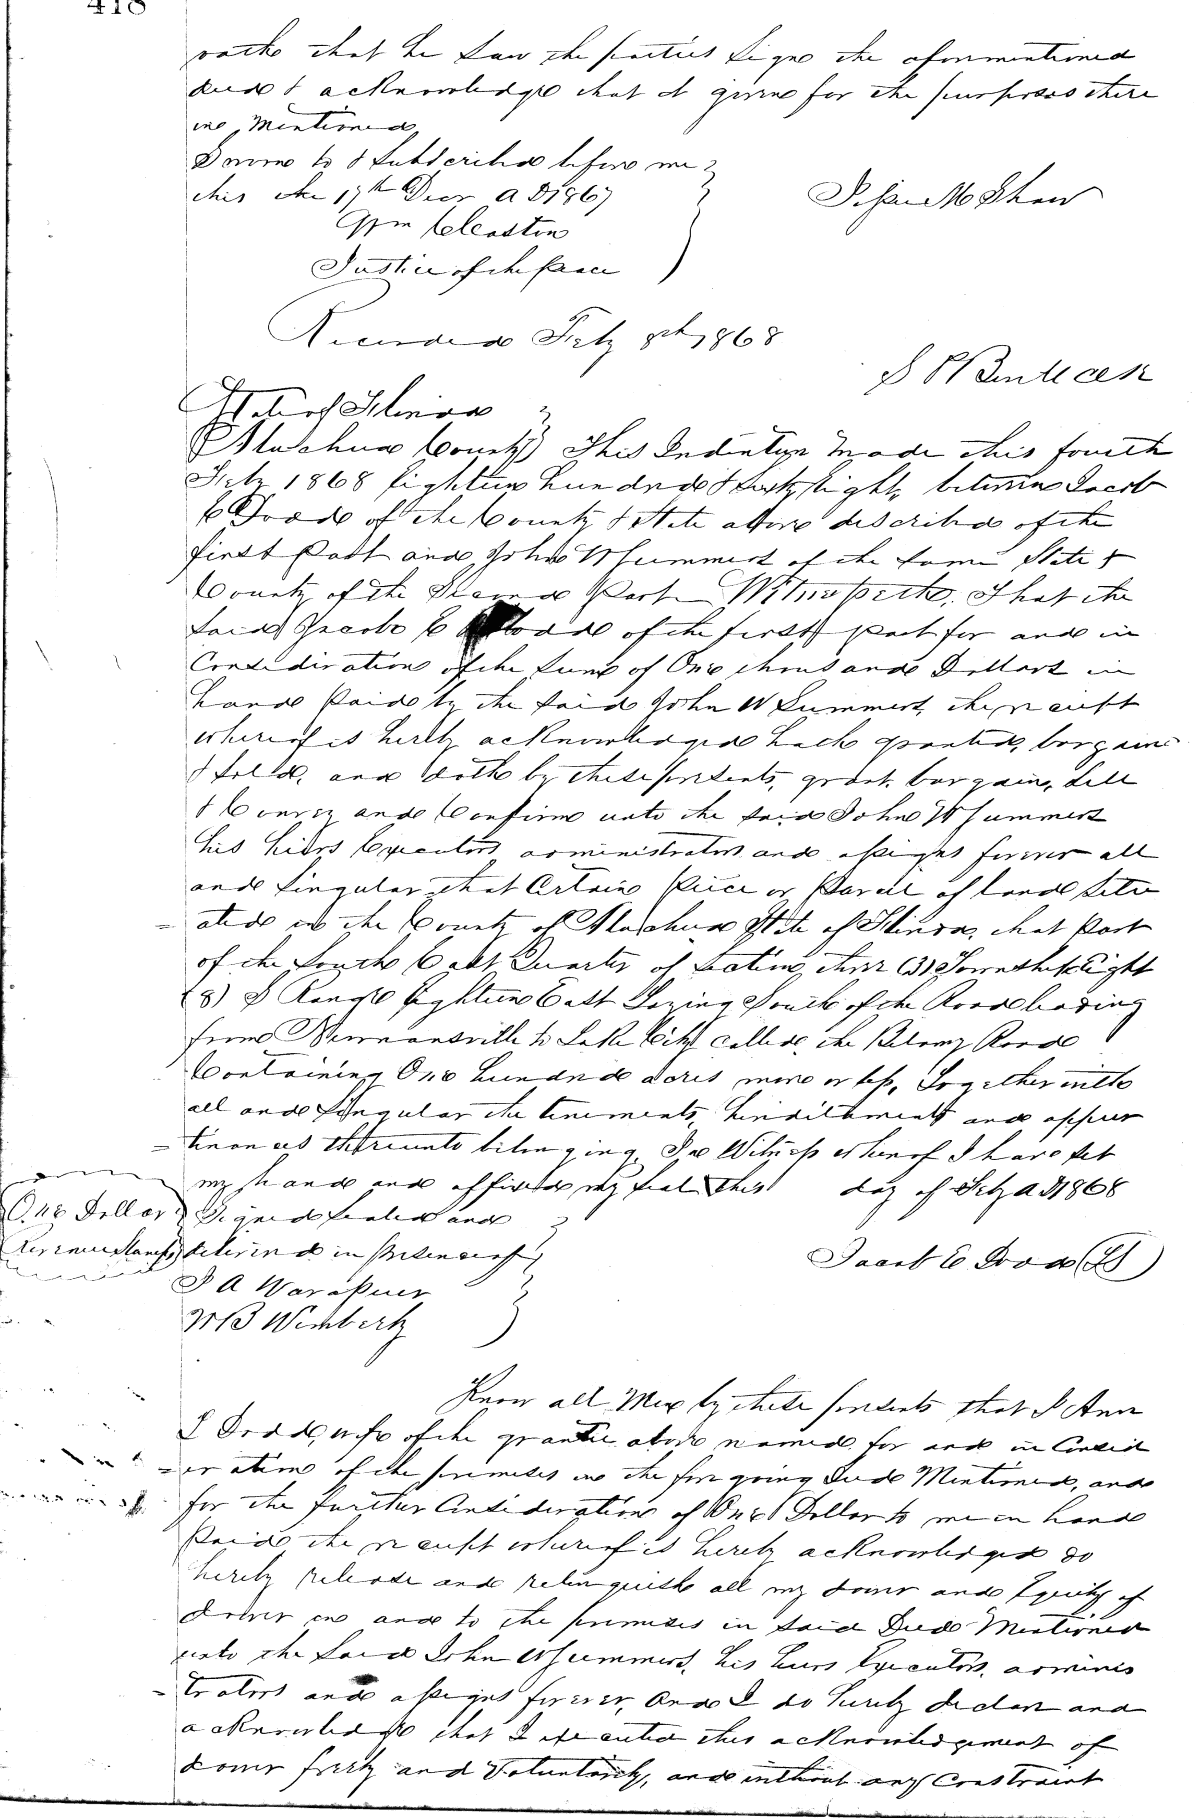 418
oath that he saw the parties signe the aforementioned
deed & acknowledge that it given for the purposes there
in Mentioned
Sworn to & Subscribed before me
this the 17th Decr A D 1867
Wm Cleaton
Justice of the peace
M Shaw
Recorded Feby 8th 1868
State of Florida
Alachua County This Indenture Made this fourth
Feby 1868 Eighteen hundred & sixty Eight, between Jacob
E Dodd of the County & State above described of the
first Part and John W Summers of the same State &
County of the Second Part Witnesseth, That the
said Jacob E Dodd of the first part for and in
Consideration of the sum of One thousand Dollars in
hand paid by the said John W Summers, the receipt
whereof is hereby acknowledged hath granted, bargained
& sold, and doth by these presents, grant, bargain, sell
& Convey and Confirm unto the said John W Summers
his heirs Executors administrators and assigns forever all
and singular that Certain Piece or Parcel of land situ
ated in the County of Alachua State of Florida, that Part
of the South East Quarter of Section three (3) Township Eight
(8) S Range Eighteen East Laying South of the Road leading
from Newnansville to Lake City called the Road
Containing One hundred acres more or less, Together with
all and singular the tenements hereditaments and appur
tenances thereunto belonging, In Witness whereof I have set
my hand and affixed my seal this day of Feby A D 1868
One Dollar Signed sealed and
Revenue Stamp delivered in presence of
Jacob E Dodd (LS)
W B Wimberly
Know all Men by these presents that I Ann
Dodd, wife of the grantee above named for and in Consid
eration of the premises in the foregoing Deed Mentioned, and
for the further Consideration of One Dollar to me in hand
Paid, the receipt whereof is hereby acknowledged do
hereby release and relinquish all my dower and Equity of
dower in and to the premises in said Deed Mentioned
unto the said John W Summers, his heirs Executors, adminis
trators and assigns forever, And I do hereby declare and
acknowledge that I executed this acknowledgement of
dower freely and Voluntarily, and without any Constraint